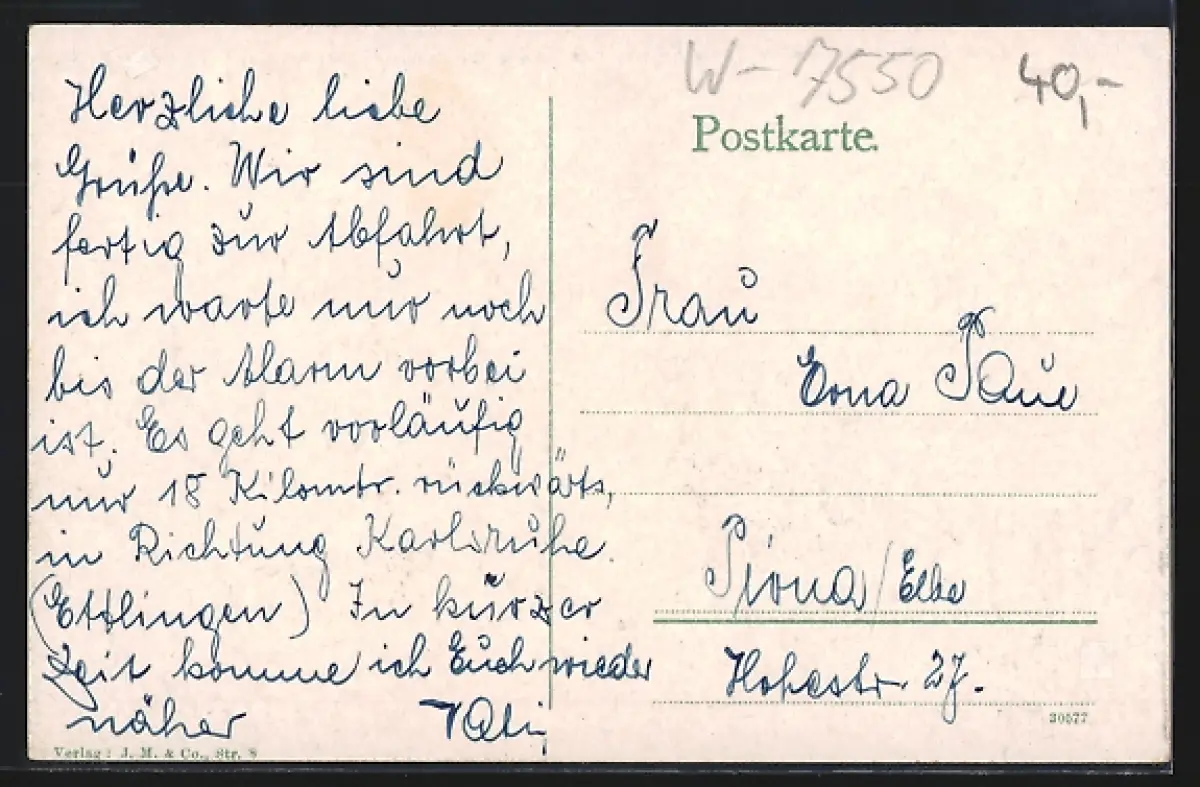 W-7550 40,-
Postkarte.
Herzliche liebe
Grüße. Wir sind
fertig zur Abfahrt,
ich warte nur noch
bis der Alarm vorbei
ist. Es geht vorläufig
nur 18 Kilomtr. rückwärts,
in Richtung Karlsruhe.
(Ettlingen) In kurzer
Zeit komme ich Euch wieder
näher
Frau
Erna
Pirna/Elbe
Hohestr. 27.
Verlag: J. M. & Co., Str. 8
30577